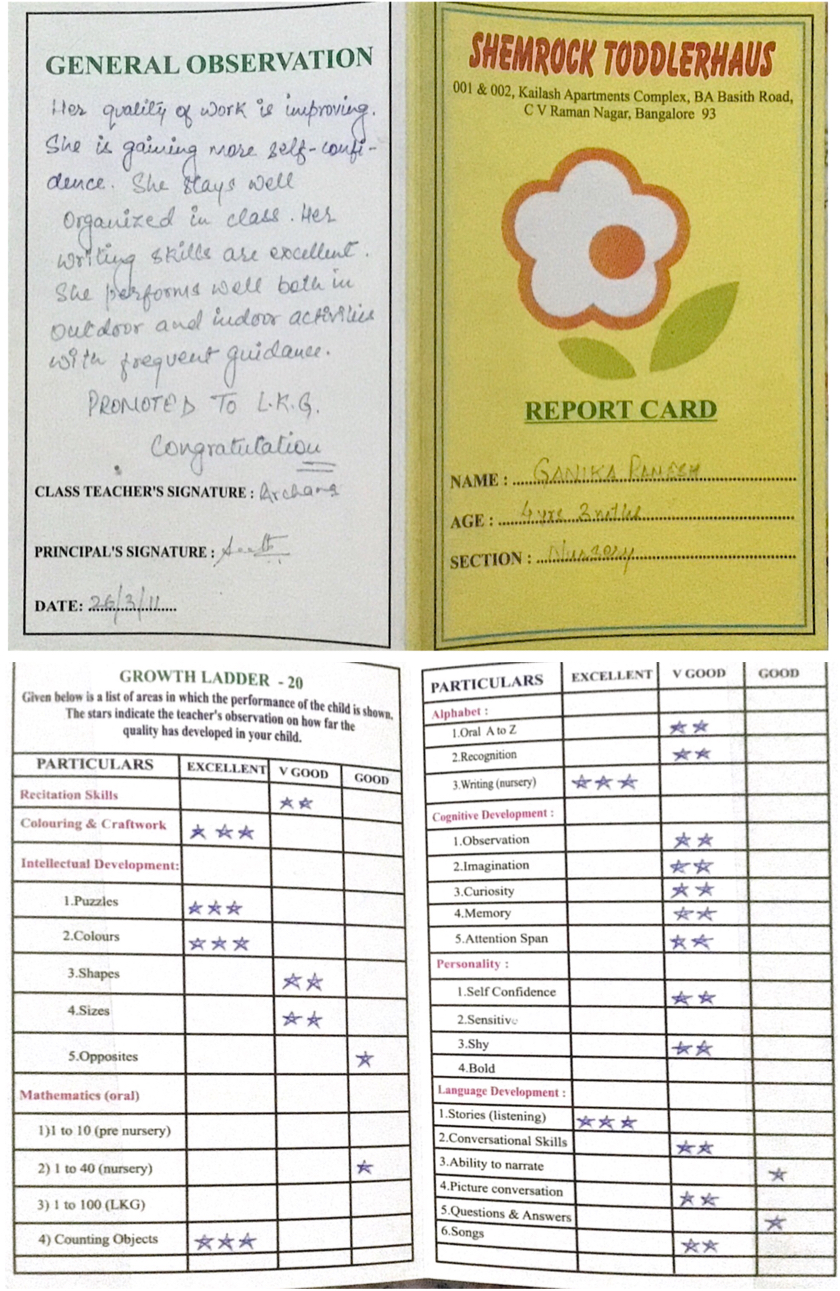 GENERAL OBSERVATION
Her quality of work is improving.
She is gaining more self-confi-
dence. She stays well
Organized in class. Her
writing skills are excellent.
She performs well both in
outdoor and indoor activities
with frequent guidance.
PROMOTED TO L.K.G.
Congratutation
CLASS TEACHER'S SIGNATURE : Archana
PRINCIPAL'S SIGNATURE :
DATE: 26/3/11
SHEMROCK TODDLERHAUS
001 & 002, Kailash Apartments Complex, BA Basith Road,
C V Raman Nagar, Bangalore 93
REPORT CARD
NAME : GANIKA RAMESH
AGE : 4 yrs 3 mths
SECTION : Nursery
GROWTH LADDER - 20
Given below is a list of areas in which the performance of the child is shown.
The stars indicate the teacher's observation on how far the
quality has developed in your child.
PARTICULARS EXCELLENT V GOOD GOOD
Recitation Skills
Colouring & Craftwork
Intellectual Development:
1.Puzzles
2.Colours
3.Shapes
4.Sizes
5.Opposites
Mathematics (oral)
1)1 to 10 (pre nursery)
2) 1 to 40 (nursery)
3) 1 to 100 (LKG)
4) Counting Objects
PARTICULARS EXCELLENT V GOOD GOOD
Alphabet :
1.Oral A to Z
2.Recognition
3.Writing (nursery)
Cognitive Development :
1.Observation
2.Imagination
3.Curiosity
4.Memory
5.Attention Span
Personality :
1.Self Confidence
2.Sensitive
3.Shy
4.Bold
Language Development :
1.Stories (listening)
2.Conversational Skills
3.Ability to narrate
4.Picture conversation
5.Questions & Answers
6.Songs